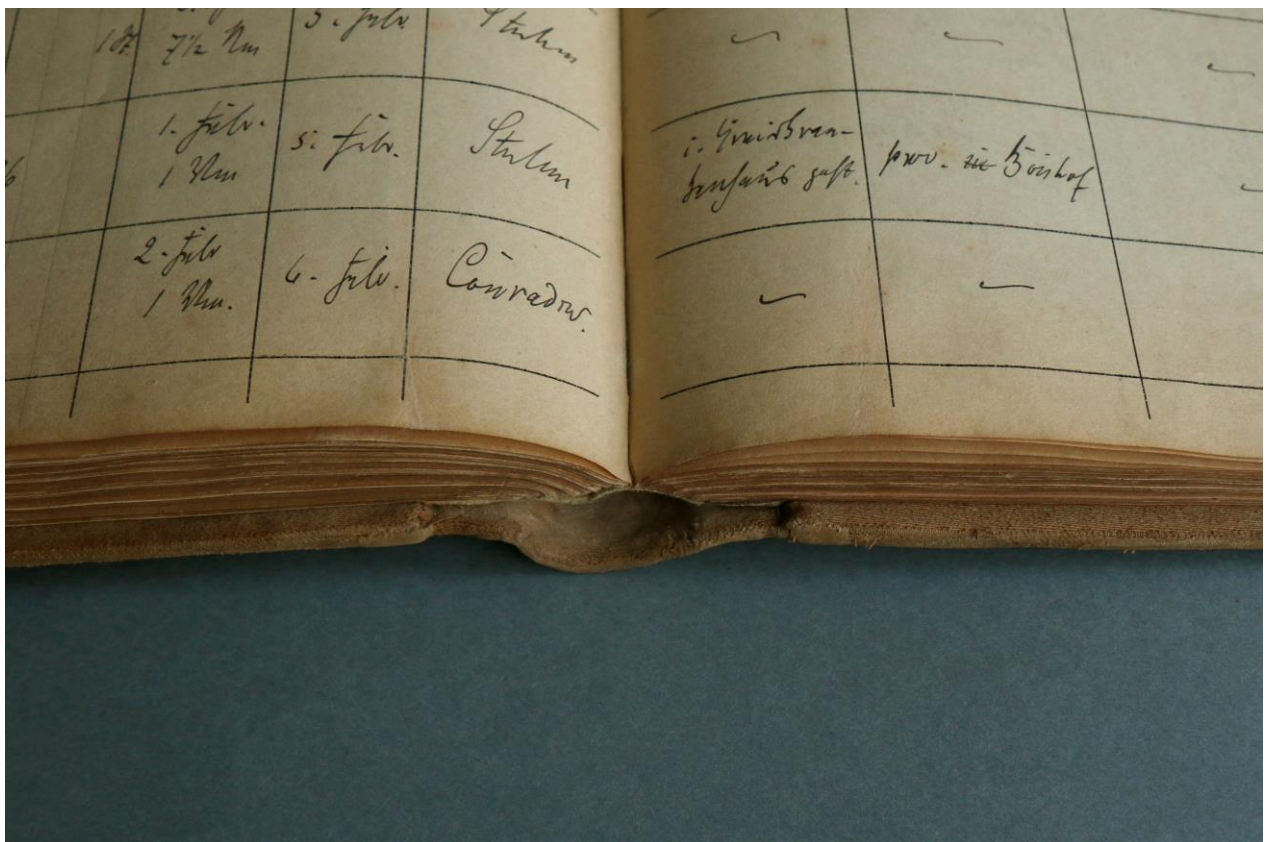 7½ Nm
5. Febr.
Stuhm
1. Febr.
1 Nm
5. Febr.
Stuhm
i. Kreiskran-
kenhaus gest.
prov.
2. Febr
1 Nm.
6. Febr.
Conradsw.